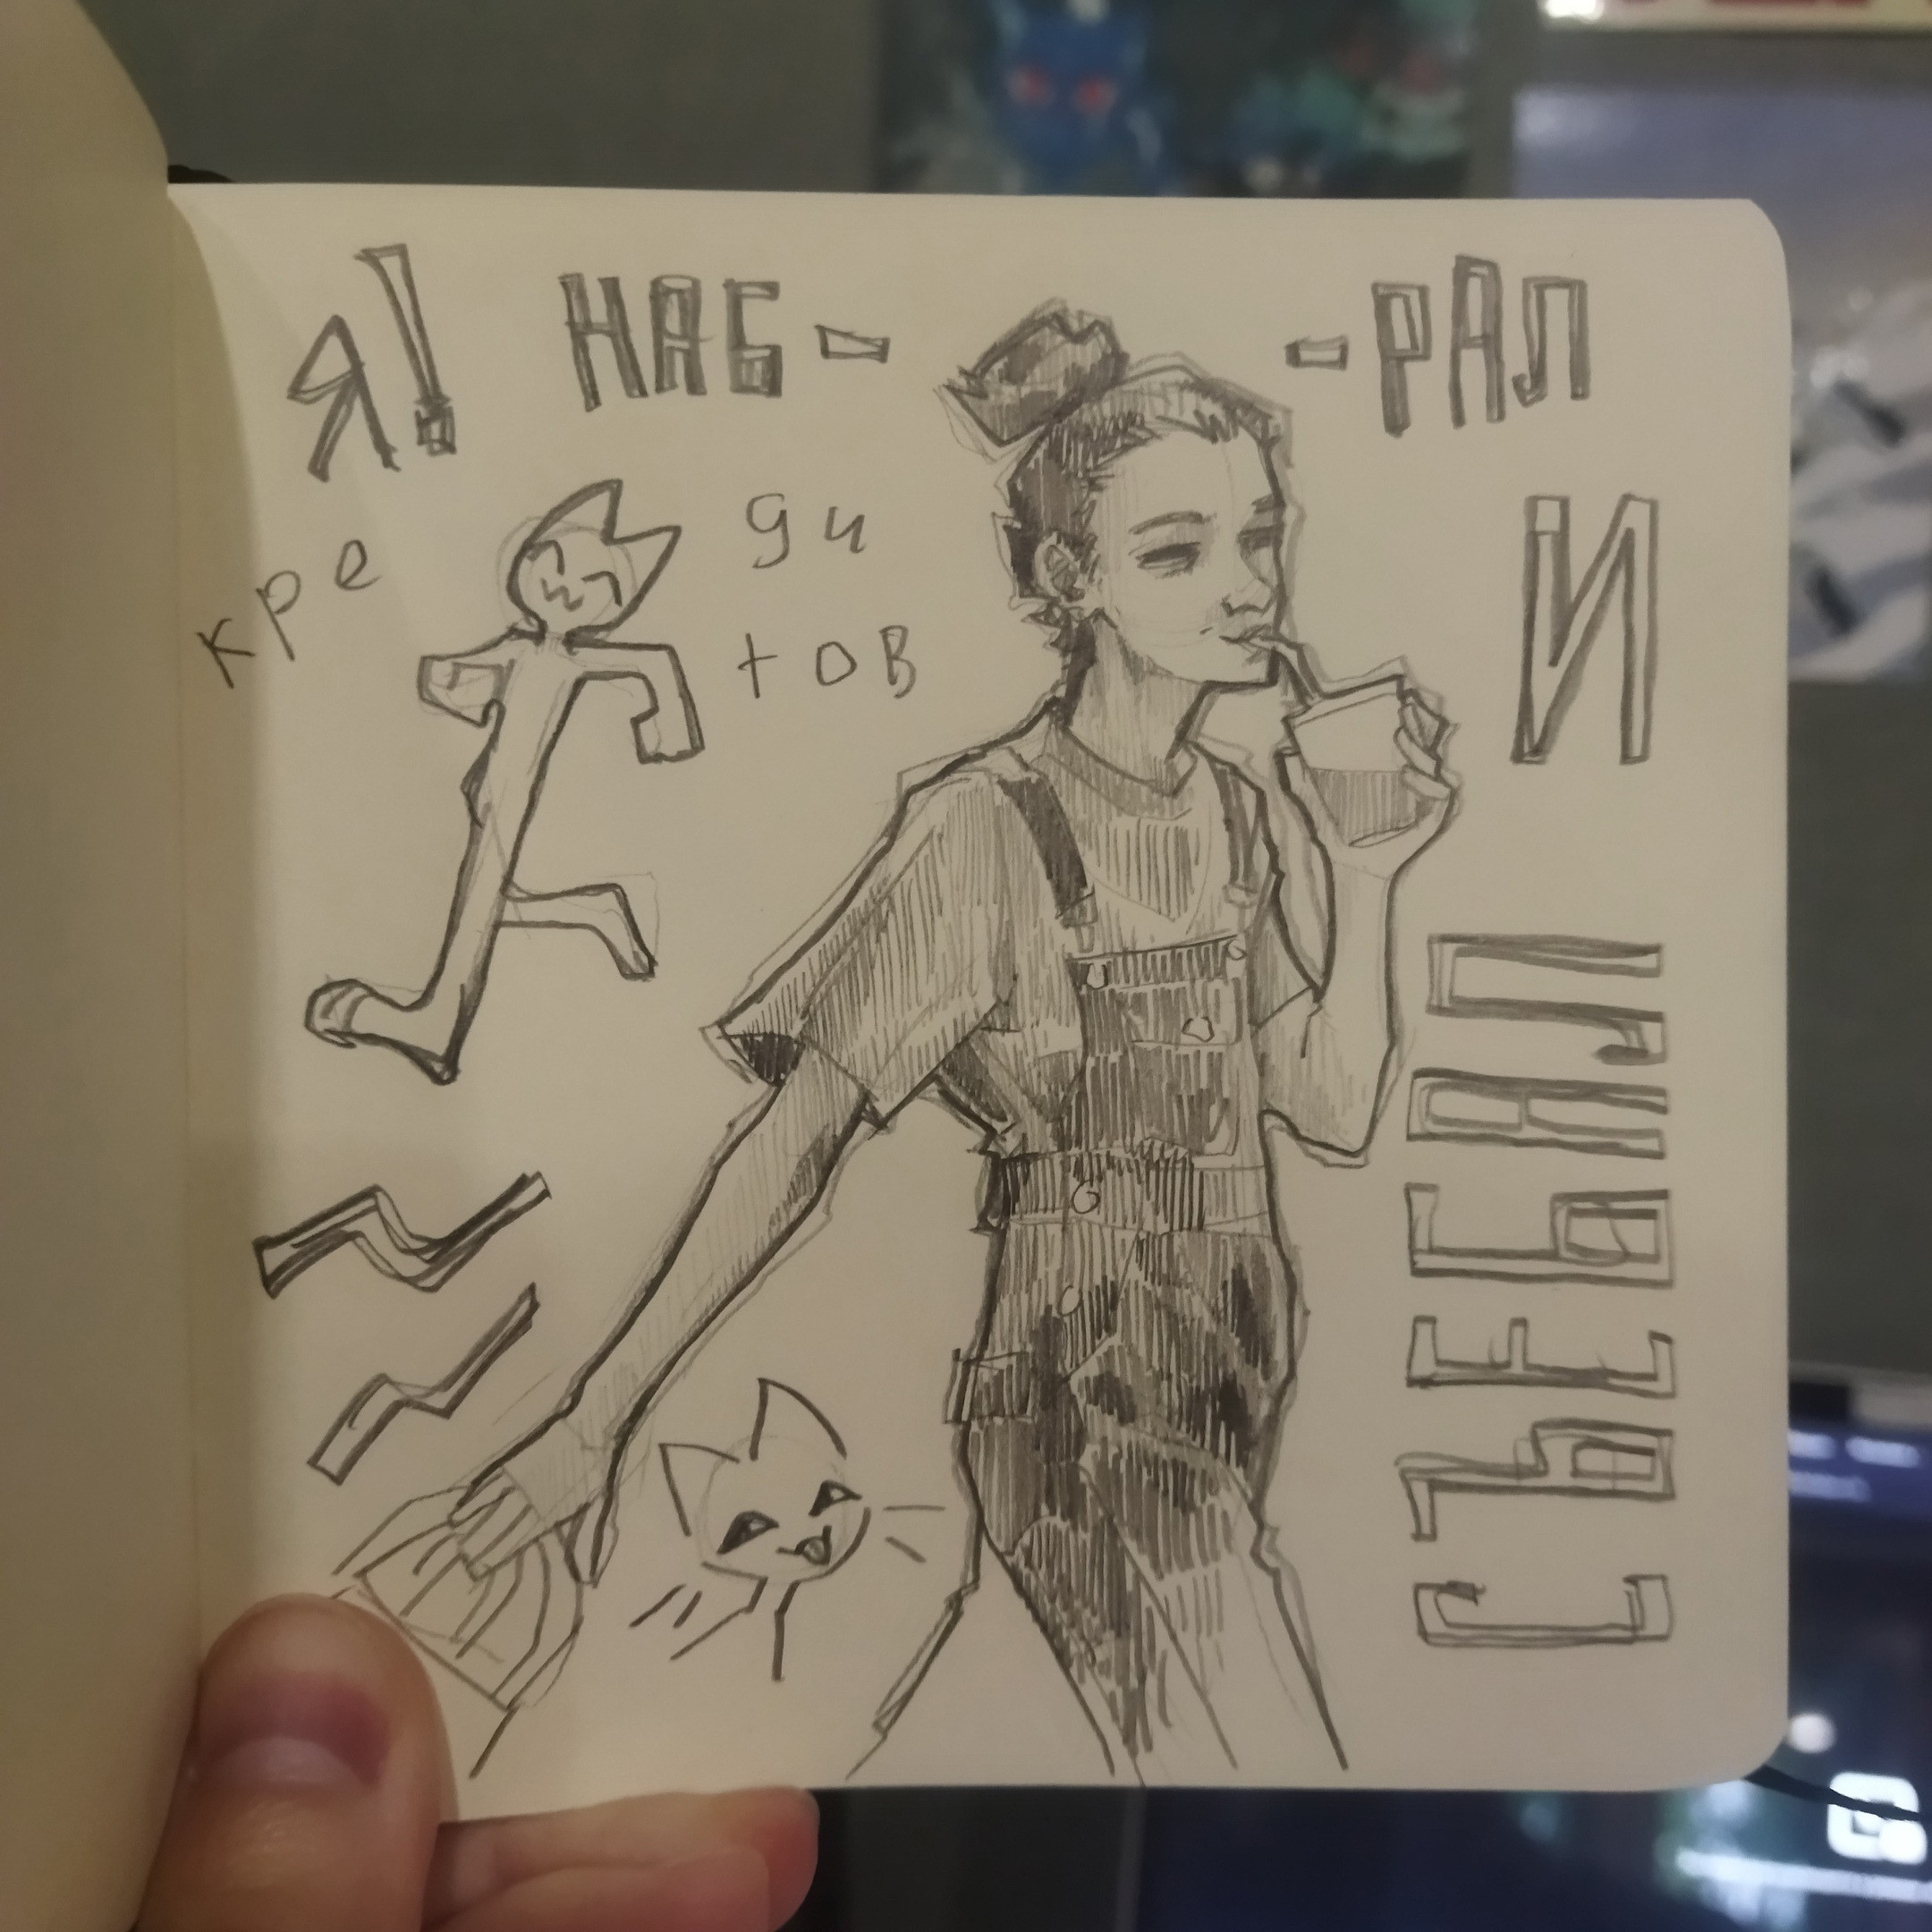 Я! НАБ- -РАЛ
кре ди
тов
И
СЪЕБАЛ